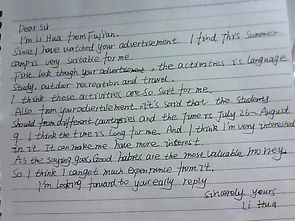 Dear Sir
I'm Li Hua from FuJian.
Since I have watched your advertisement. I find this summer
camp is very suitable for me.
First, look though your advertisement, the activities is language
Study, outdoor recreation and travel.
I think these activities are so suit for me.
Also from your advertisement. It's said that the students
should from different countries and the time is July 26 – August
9. I think the time is long for me. And I think I'm very interested
in it. It can make me have more interest.
As the saying goes Good habits are the most valuable money.
So I think I can get much experience from it.
I'm looking forward to your early reply
Sincerely yours,
Li Hua